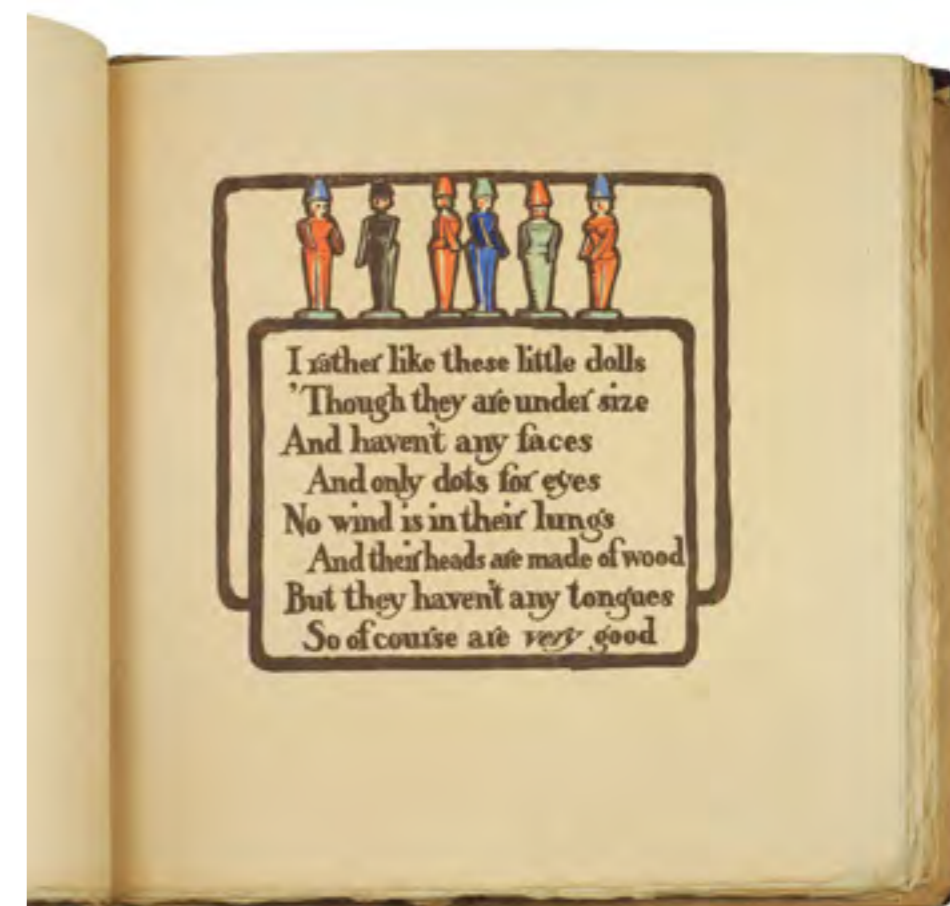 I rather like these little dolls
'Though they are under size
And haven't any faces
And only dots for eyes
No wind is in their lungs
And their heads are made of wood
But they haven't any tongues
So of course are very good